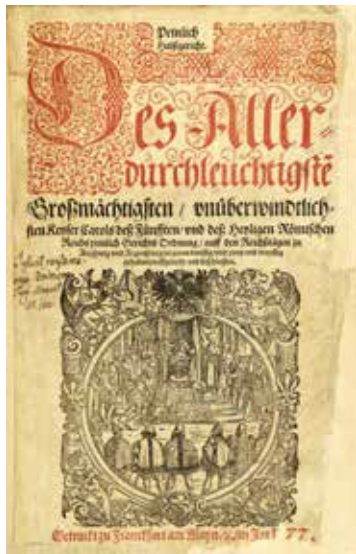 Peinlich
Halßgericht.
Des Aller-
durchleuchtigstē
Großmächtigsten / vnüberwindtlich-
sten Keyser Carols deß Fünfften / vnd deß Heyligen Römischen
Reichs peinlich Gerichts Ordnung / auff den Reichßtägen zu
Augspurg vnd Regenspurg
Getruckt zu Franckfurt am Mayn, im Jar 77.